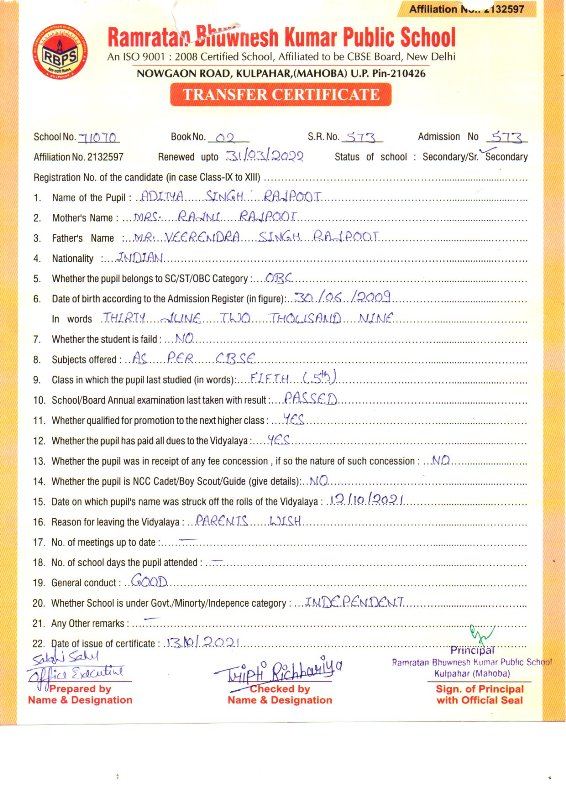 Affiliation No.. 2132597
RBPS
Ramratan Bhuwnesh Kumar Public School
An ISO 9001 : 2008 Certified School, Affiliated to be CBSE Board, New Delhi
NOWGAON ROAD, KULPAHAR,(MAHOBA) U.P. Pin-210426
TRANSFER CERTIFICATE
School No. 71070 Book No. 02 S.R. No. 573 Admission No 573
Affiliation No. 2132597 Renewed upto 31/03/2022 Status of school : Secondary/Sr. Secondary
Registration No. of the candidate (in case Class-IX to XIII)
1. Name of the Pupil : ADITYA SINGH RAJPOOT
2. Mother's Name : MRS. RAJNI RAJPOOT
3. Father's Name : MR. VEERENDRA SINGH RAJPOOT
4. Nationality : INDIAN
5. Whether the pupil belongs to SC/ST/OBC Category : OBC
6. Date of birth according to the Admission Register (in figure): 30/06/2009
In words THIRTY JUNE TWO THOUSAND NINE
7. Whether the student is faild : NO
8. Subjects offered : AS PER CBSE
9. Class in which the pupil last studied (in words): FIFTH (5th)
10. School/Board Annual examination last taken with result : PASSED
11. Whether qualified for promotion to the next higher class : YES
12. Whether the pupil has paid all dues to the Vidyalaya : YES
13. Whether the pupil was in receipt of any fee concession , if so the nature of such concession : NO
14. Whether the pupil is NCC Cadet/Boy Scout/Guide (give details): NO
15. Date on which pupil's name was struck off the rolls of the Vidyalaya : 12/10/2021
16. Reason for leaving the Vidyalaya : PARENTS WISH
17. No. of meetings up to date : —
18. No. of school days the pupil attended : —
19. General conduct : GOOD
20. Whether School is under Govt./Minorty/Indepence category : INDEPENDENT
21. Any Other remarks : —
22. Date of issue of certificate : 13/10/2021
Office Executive
Tripti Richhariya
Principal
Ramratan Bhuwnesh Kumar Public School
Kulpahar (Mahoba)
Prepared by
Name & Designation
Checked by
Name & Designation
Sign. of Principal
with Official Seal